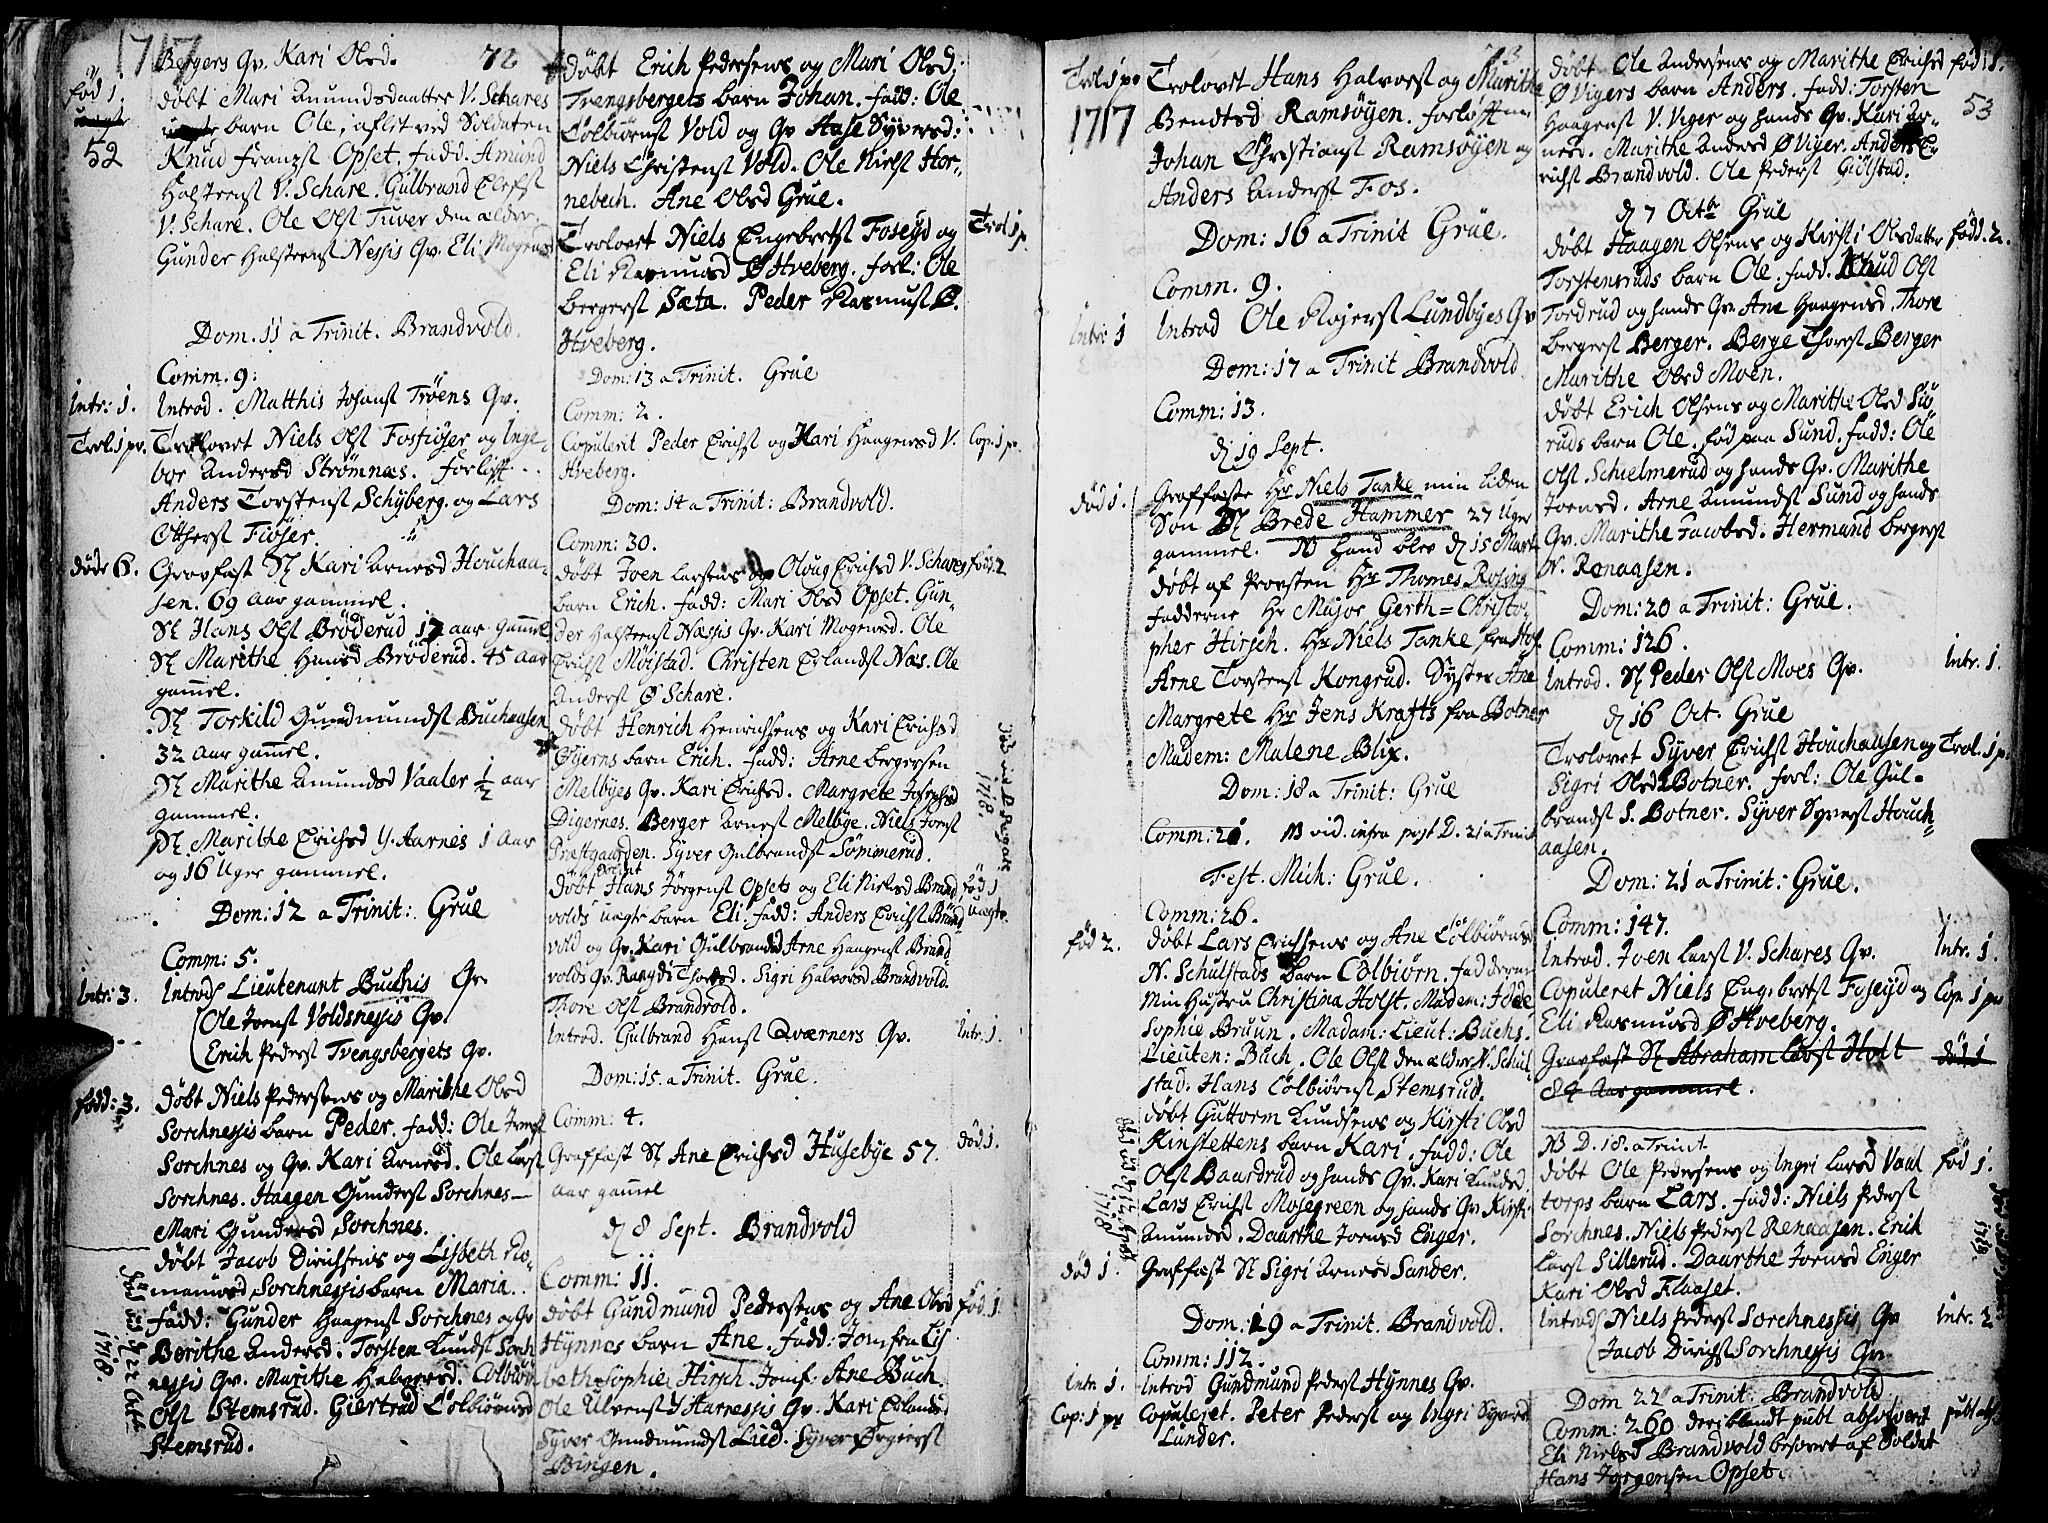 1717
Bergers Qv. Kari Olsd. 72
fød 1.
uægte
52
døbt Mari Amundsdaatter V. Schares
uægte barn Ole, aflet ved Soldaten
Knud Franzst Opset. fadd. Amund
Halstenst V. Schare. Gulbrand
V. Schare. Ole Olst Tuver den ælder.
Gunder Halstenst Nessis Qv. Eli Mogensd
Dom. 11 a Trinit. Brandvold.
Comm. 9:
Intr: 1. Introd. Matthis Johanst Trøens Qv.
Trol. 1 pr. Trolovet Niels Olst Fosfiøser og Inge-
bor Andersd Strømnæs. forlift
Anders Torstenst Schyberg. og Lars
Ottherst Fiøser.
døde 6. Gravfæst Sl Kari Arnesd Houchaa-
sen. 69 aar gammel.
Sl Hans Olst Brøderud 17 aar gamel
Sl Marithe Hansd Brøderud. 45 aar
gamel.
Sl Torkild Gundmundst Buchaasen
32 aar gamel.
Sl Marithe Amundsd Vaaler ½ aar
gammel.
Sl Marithe Erichsd Y. Aarnes 1 aar
og 16 Uger gammel.
Dom: 12 a Trinit: Grue
Comm: 5.
Intr: 3. Introd Lieutenant Buchis Qv.
Ole Jornst Voldsnessis Qv.
Erich Pederst Tvengsbergets Qv.
fødd: 3. døbt Niels Pedersens og Marithe Olsd
Sorchnessis barn Peder. fadd: Ole Jonst
Sorchnes og Qv. Kari Arnesd. Ole Larst
Sorchnes. Haagen Gunderst Sorchnes
Mari Gundersd Sorchnes.
døbt Jacob Dirichsens og Lisbeth Ro-
mansd Sorchnessis barn Maria.
fadd: Gunder Haagenst Sorchnes og Qv
Berithe Andersd. Torsten Knudst Sorch
nessis Qv. Marithe Halgersd. Colbiør
Olst Stemsrud. Giertrud Colbiørnsd
Stemsrud.
1718.
døbt Erich Pedersens og Mari Olsd
Tvengsbergets barn Johan. fadd: Ole
Colbiørnst Vold og Qv Aase Syversd:
Niels Christenst Vold. Ole Nielst Hor-
nebech. Ane Olsd Grue.
Trolovet Niels Engebretst Foseyd og Trol 1 p.
Eli Rasmusd Ø Hveberg. forl: Ole
bergerst Sæta. Peder Rasmust Ø.
Hveberg.
Dom: 13 a Trinit. Grue
Comm: 2.
Copulerit Peder Erichst og Kari Haagensd V. Cop: 1 p.
Hveberg.
Dom: 14 a Trinit: Brandvold.
Comm: 30.
døbt Joen Larsens og Oloug Erichsd V. Schares fød: 2
barn Erich. fadd: Mari Olsd Opset. Gun-
der Halstenst Næssis Qv. Kari Mogensd. Ole
Erichst Møistad. Christen Erlandst Næs. Ole
Anderst Ø Schare.
døbt Henrich Henrichsens og Kari Erichsd
Øyerns barn Erich. fadd: Arne bergersen
Melbyes Qv. Kari Erichsd. Margrete Josephsd
Digernes. Berger Arnest Melbye. Niels Jonst
Præstgaarden. Syver Gulbrandst Sømmerud.
døbt Hans Jørgenst Opsets og Eli Nielsd Brand fød 1
volds uægte barn Eli. fadd: Anders Erichst Brand uægte.
vold og Qv. Kari Gulbrandsd Arne Haagenst Brand
volds Qv. Rangdi Thoresd. Sigri Halvorsd Brandvold.
Thore Olst Brandvold.
Introd. Gulbrand Hanst Qværners Qv. Intr: 1.
Dom: 15. a Trinit. Grue.
Comm: 4.
Graffæst Sl Ane Erichsd Husebye 57. død 1.
aar gamel
d 8 Sept. Brandvold
Comm: 11.
døbt Gundmund Pedersens og Ane Olsd fød. 1.
Hynnes barn Ane. fadd: Jomfru Lis
beth Sophie Hirsch. Jomf. Ane Buch.
Ole Ulvenst Y Harnessis Qv. Kari Erlands.
Syver Gundmundst Lied. Syver
Bingen.
1718.
Trol 1 pr Trolovet Hans Halvorst og Marithe
1717
Bendtsd Ramsøyen. forløftme
Johan Christianst Ramsøyen og
Anders Anderst Fos.
Dom: 16 a Trinit Grue.
Comm. 9.
Intr: 1 Introd Ole Rojerst Lundbyes Qv
Dom: 17 a Trinit Brandvold
Comm: 13.
d 19 Sept.
død 1. Graffæste Hr Niels Tanke min liden
Søn Sl Brede Hammer 27 uger
gammel. NB hand blev d 15 Mart
døbt af Provsten Hr Thomes Rosing
fadderne Hr Major Gerth=Christo-
pher Hirsch. Hr Niels Tanke fra Hof
Arne Torstenst Kongrud. Syster Ane
Margrete Hr Jens Krafts fra Botner
Madem: Malene Blix.
Dom: 18 a Trinit: Grue
Comm: 21. NB vid. infra post D. 21 a Trinit
Fest. Mich: Grue.
Comm: 26.
fød 2. døbt Lars Erichsens og Ane Colbiørns
N. Schulstads barn Colbiørn. fadderne
Min Hustru Christina Holst. Madem:
Sophie Bruun. Madam: Lieut: Buchs.
Lieuten: Buch. Ole Olst den ælder N. Schul
stad. Hans Colbiørnst Stemsrud.
døbt Guttorm Knudsens og Kirsti Olsd
Rinstettens barn Kari. fadd: Ole
Olst Baardrud og hands Qv. Kari Knudsd
Lars Erichst Mosegreen og hands Qv Kirsti
Amundsd. Daarthe Jornsd Enger.
død 1. Graffæst Sl Sigri Arnesd Sander.
Dom: 19 a Trinit. Brandvold.
Comm: 112.
Intr 1. Introd Gundmund Pederst Hynnes Qv.
Cop: 1 pr Copuleret. Peter Pederst og Ingri Syversd
Lunder.
1718
døbt Ole Andersens og Marithe Erichsd fød 1.
Ø Vigers barn Anders. fadd: Torsten
53
Haagenst V. Viger og hands Qv. Kari Ar-
nesd. Marithe Andersd Ø Viger. Anders E
richst Brandvold. Ole Pederst Giølstad.
d 7 Octb Grue
døbt Haagen Olsens og Kirsti Olsdatter fødd. 2.
Torstensruds barn Ole. fadd. Knud Olst
Tordrud og hands Qv. Ane Haagensd. Thore
bergerst Berger. Berge Thorest Berger
Marithe Olsd Moen.
døbt Erich Olsens og Marithe Olsd Su
ruds barn Ole. fød paa Sund. fadd: Ole
Olst Schielmerud og hands Qv. Marithe
Jornsd. Arne Amundst Sund og hands
Qv. Marithe Jacobsd. Hermand bergerst
N. Renaasen.
Dom: 20 a Trinit: Grue.
Comm: 126.
Introd. Sl Peder Olst Moes Qv. Intr. 1.
d 16 Oct. Grue
Trolovet Syver Erichst Houchaasen og Trol. 1 p.
Sigri Olsd Botner. forl: Ole Gul-
brandst S. Botner. Syver Syverst Houch-
aasen.
Dom: 21 a Trinit: Grue.
Comm: 147.
Introd. Joen Larst V. Schares Qv. Intr. 1.
Copuleret Niels Engebretst Foseyd og Cop. 1 pr
Eli Rasmusd Ø Hveberg.
Gravfæst Sl Abraham Larst Holt død 1
84 aar gammel.
NB D. 18. a Trinit.
døbt Ole Pedersens og Ingri Larsd Vaal fød 1.
torps barn Lars. fadd: Niels Pederst
Sorchnes. Niels Pederst Renaasen. Erich
Larst Sillerud. Daarthe Jornsd Enger
Kari Olsd Flaaset.
Introd Niels Pederst Sorchnessis Qv Intr. 2
Jacob Dirichst Sorchnessis Qv.
Dom 22 a Trinit. Brandvold
Comm: 260 deriblandt publ absolverit publ abs
Eli Nielsd Brandvold besovet af Soldat
Hans Jørgensen Opset.